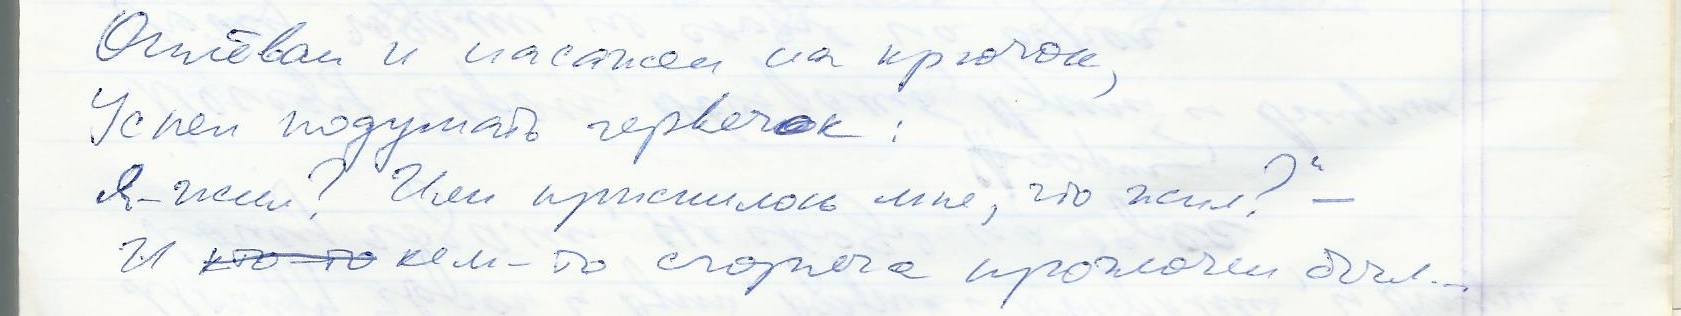 Оплёван и насажен на крючок,
Успел подумать червечок:
Я – жил? Или приснилось мне, что жил?" –
И кто-то кем-то сгоряча проглочен был...